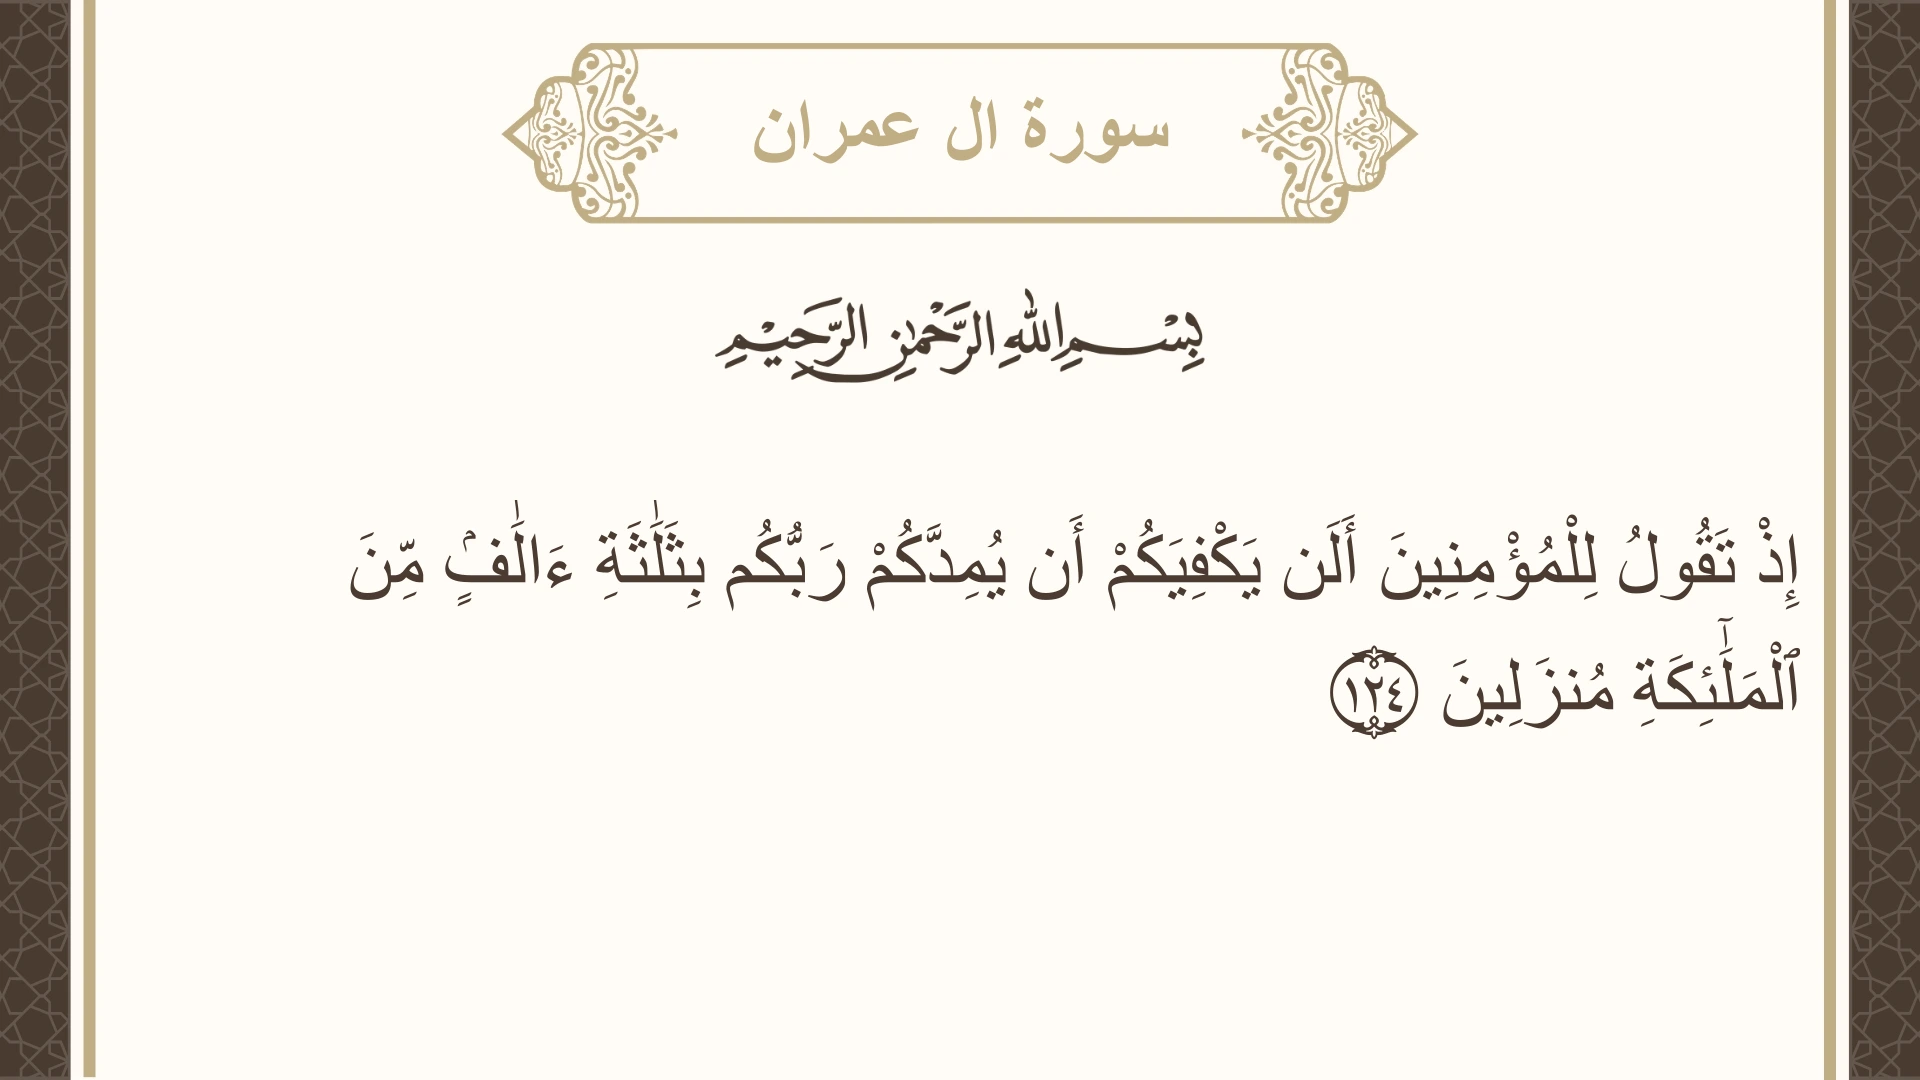 سورة ال عمران
بِسْمِ اللهِ الرَّحْمٰنِ الرَّحِيْمِ
إِذْ تَقُولُ لِلْمُؤْمِنِينَ أَلَن يَكْفِيَكُمْ أَن يُمِدَّكُمْ رَبُّكُم بِثَلَٰثَةِ ءَالَٰفٍۢ مِّنَ
ٱلْمَلَٰٓئِكَةِ مُنزَلِينَ ١٢٤